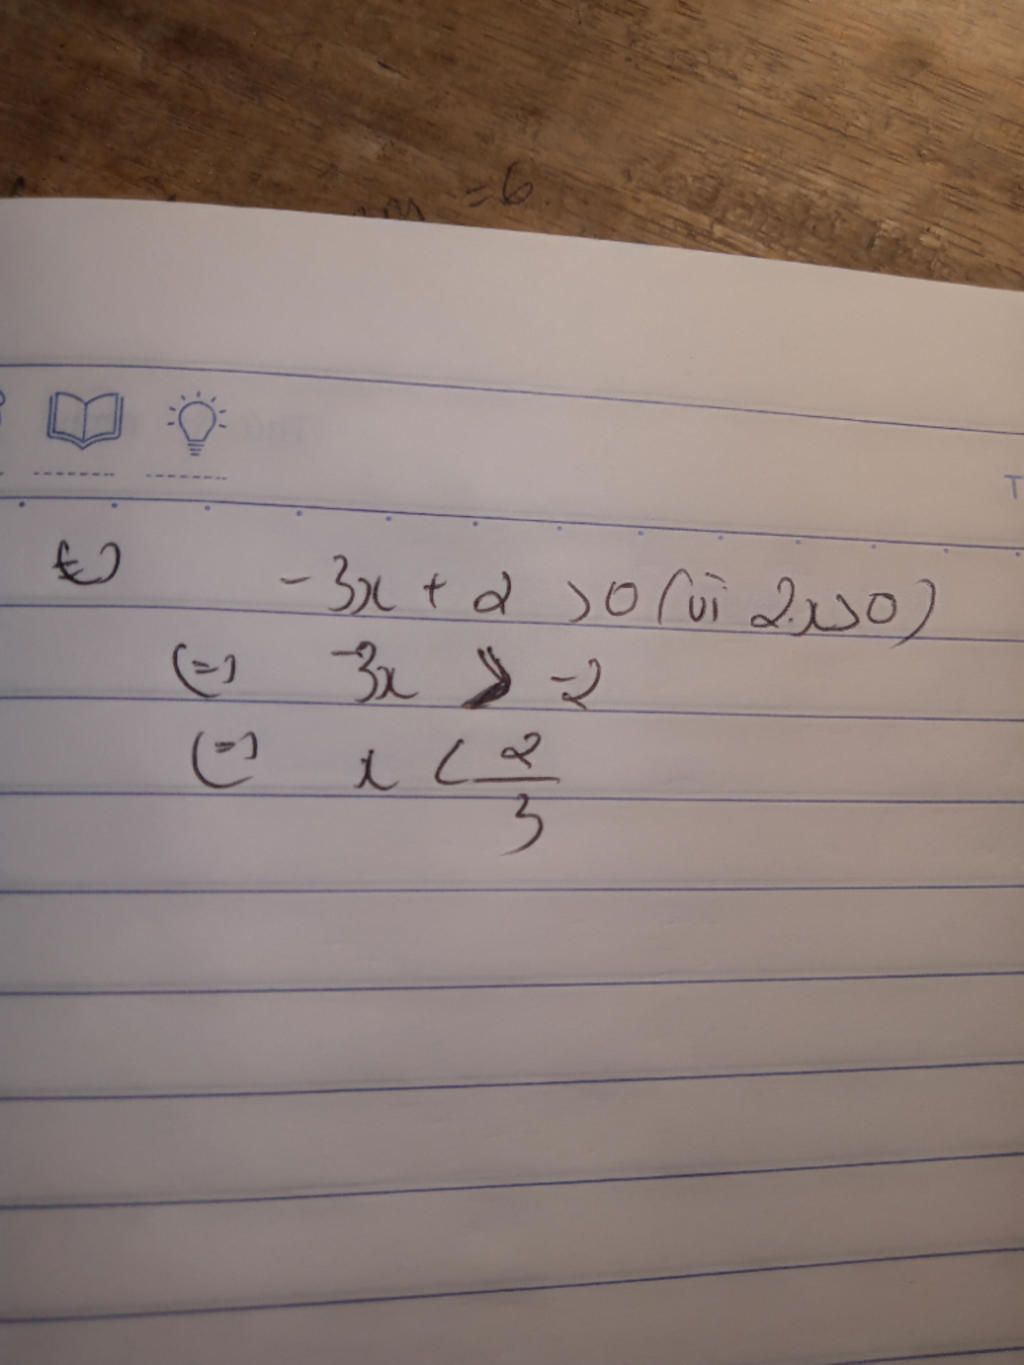 = 6
T
t) -3x + 2 > 0 (vì 2x > 0)
(=) -3x > -2
(=) x < 2/3